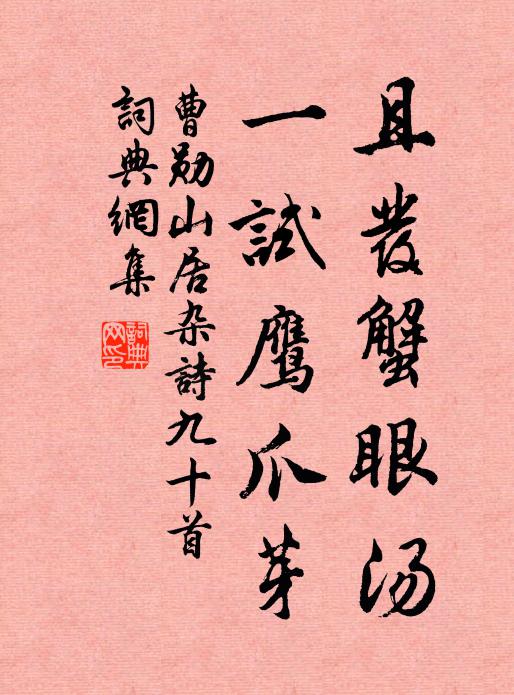 且發蟹眼汤
一試鷹爪芽
曹勛山居杂詩九十首
詞典網集
詞典
网印